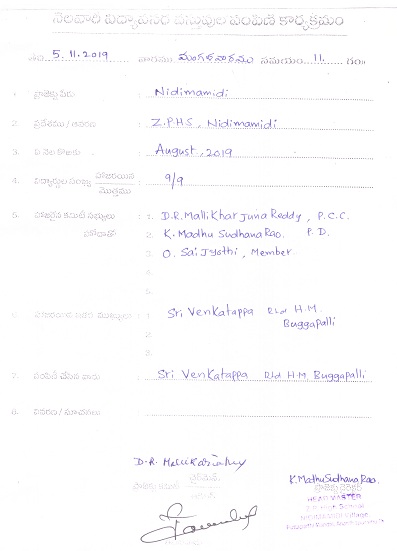 నెలవారి విద్యావసర వస్తువుల పంపిణీ కార్యక్రమం
5.11.2019 వారము మంగళవారము సమయం 11. గం
1. ప్రాజెక్టు పేరు Nidimamidi
2. ప్రదేశము / ఆవరణ Z.P.H.S, Nidimamidi
3. ఏ నెల కొరకు August, 2019
4. విద్యార్థుల సంఖ్య హాజరయిన / మొత్తము 9/9
5. హాజరైన కమిటి సభ్యులు 1. D.R. Mallikharjuna Reddy, P.C.C.
2. K. Madhu Sudhana Rao. P.D.
3. O. Sai Jyothi, Member
4.
5.
1. Sri Venkatappa Rtd H.M
Buggapalli
2.
3.
7. పంపిణీ చేసిన వారు Sri Venkatappa Rtd H.M Buggapalli
8. వివరం / సూచనలు
K. Madhu Sudhana Rao.
HEAD MASTER